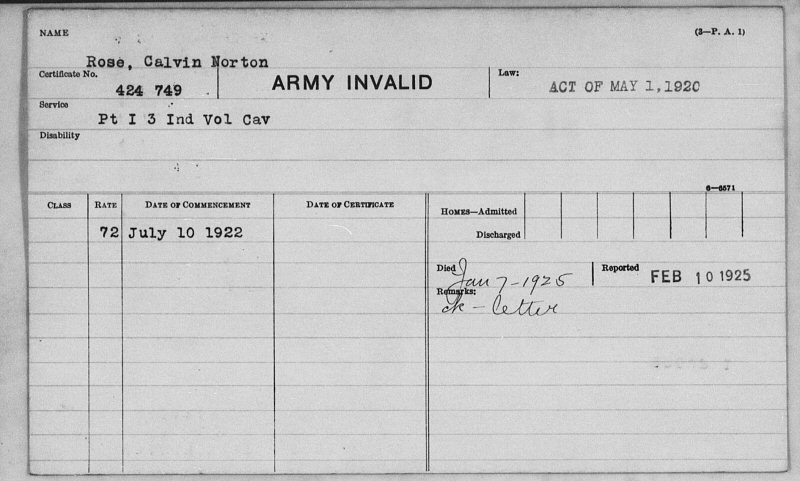 NAME
(3—P. A. 1)
Rose, Calvin Norton
Certificate No.
424 749
ARMY INVALID
Law:
ACT OF MAY 1, 1920
Service
Pt I 3 Ind Vol Cav
Disability
6—6571
CLASS RATE DATE OF COMMENCEMENT DATE OF CERTIFICATE
HOMES—Admitted
Discharged
72 July 10 1922
Died Jan 7-1925
Reported FEB 10 1925
Remarks:
ck - letter